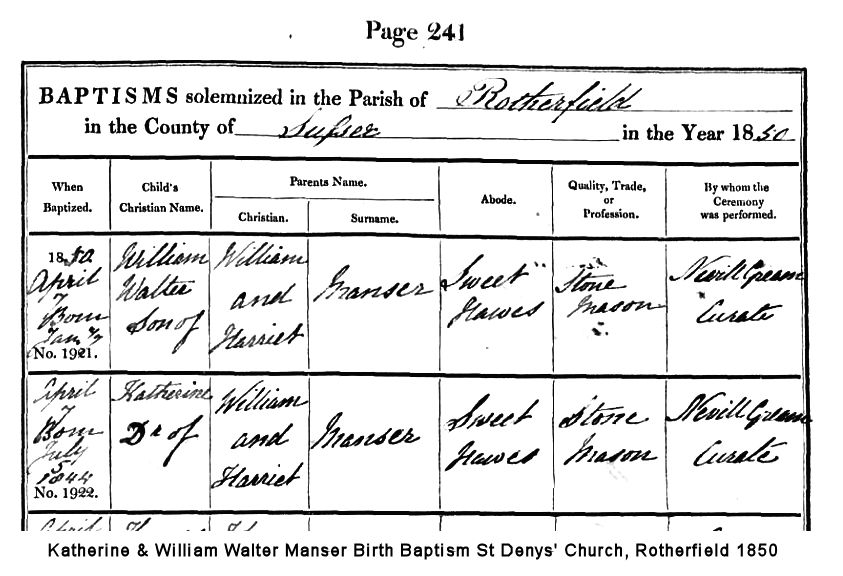 Page 241
BAPTISMS solemnized in the Parish of Rotherfield
in the County of Sussex in the Year 1850
When Baptized.
Child's Christian Name.
Parents Name.
Christian.
Surname.
Abode.
Quality, Trade, or Profession.
By whom the Ceremony was performed.
1850
April
7
Born
Jany
No. 1921.
William
Walter
Son of
William
and
Harriet
Manser
Sweet
Hawes
Stone
Mason
Nevill Gream
Curate
April
7
Born
July
5
1844
No. 1922.
Katherine
Dr of
William
and
Harriet
Manser
Sweet
Hawes
Stone
Mason
Nevill Gream
Curate
April
Katherine & William Walter Manser Birth Baptism St Denys' Church, Rotherfield 1850